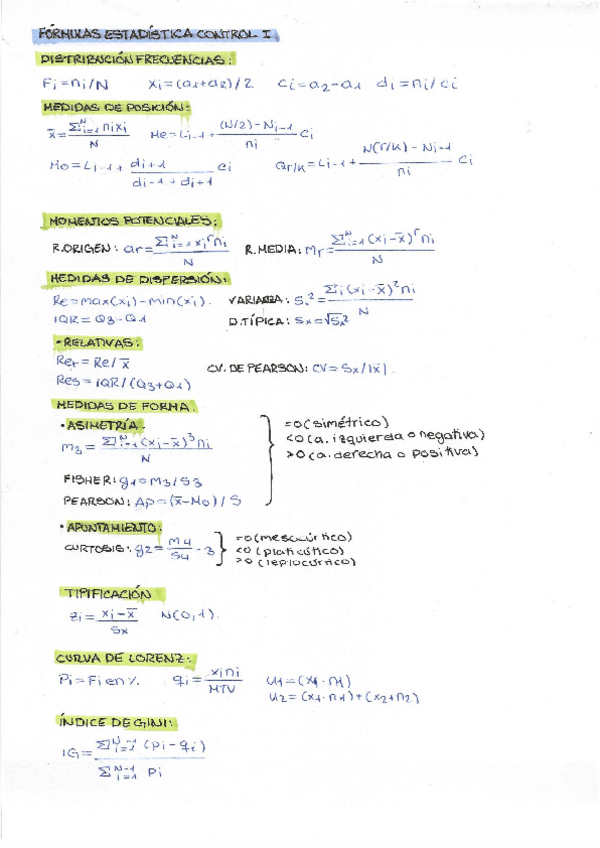 FÓRMULAS ESTADÍSTICA CONTROL I
DISTRIBUCIÓN FRECUENCIAS:
Fi=ni/N xi=(a1+a2)/2 ci=a2-a1 di=ni/ci
MEDIDAS DE POSICIÓN:
x̄=Σᴺᵢ₌₁ nixi/N Me=Li-1+((N/2)-Ni-1/ni) ci
Mo=Li-1+(di+1/di-1+di+1) ci Qr/k=Li-1+(N(r/k)-Ni-1/ni) ci
MOMENTOS POTENCIALES:
R.ORIGEN: ar=Σᴺᵢ₌₁ xiʳni/N R.MEDIA: mr=Σᴺᵢ₌₁(xi-x̄)ʳni/N
MEDIDAS DE DISPERSIÓN:
Re=max(xi)-min(xi). VARIANZA: S.²=Σi(xi-x̄)²ni/N
IQR=Q3-Q1 D.TÍPICA: Sx=√Sx²
·RELATIVAS:
Rer=Re/x̄
CV. DE PEARSON: CV=Sx/|x̄|.
Res=IQR/(Q3+Q1)
MEDIDAS DE FORMA.
·ASIMETRÍA.
=0(simétrico)
<0(a. izquierda o negativa)
>0(a. derecha o positiva)
m3=Σᴺᵢ₌₁(xi-x̄)³ni/N
FISHER: g1=m3/S3
PEARSON: Ap=(x̄-Mo)/S
·APUNTAMIENTO:
CURTOSIS: g2=m4/S4-3
=0(mesocúrtico)
<0(platicútico)
>0(leptocúrtico)
TIPIFICACIÓN
zi=xi-x̄/Sx N(0,1).
CURVA DE LORENZ:
Pi=Fi en %. qi=xini/MTV u1=(x1·n1)
u2=(x1·n1)+(x2+n2)
ÍNDICE DE GINI:
IG=Σᴺ⁻¹ᵢ₌₁(pi-qi)/Σᴺ⁻¹ᵢ₌₁ pi